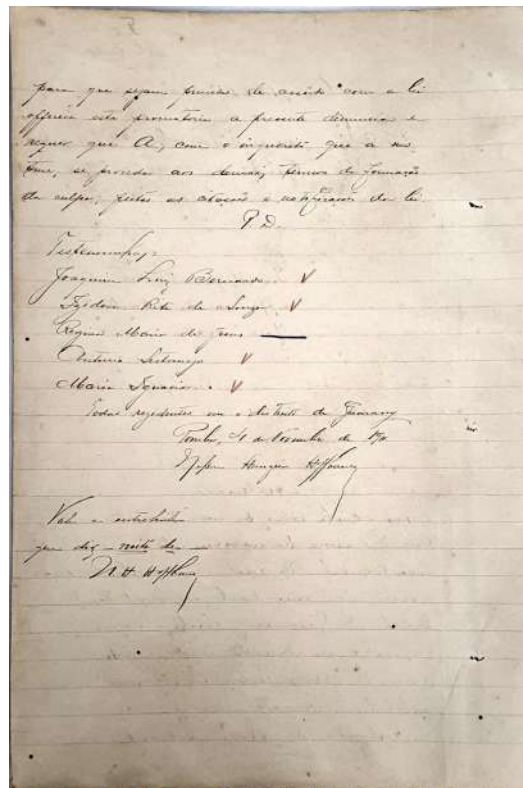 para que sejam punidos de accordo com a lei
offerece esta promotoria a presente denuncia e
requer que A, com o inquerito que a
se proceda aos demais termos da formação
da culpa, feitas as citações e notificações da lei.
P. D.
Testemunhas:
Joaquim Luiz Bernardo
Rita de Souza
Regina Maria de Jesus
Antonio
Maria Ignacia
Todos rezidentes no districto de Guarany
Pomba, de Novembro de
Hoffbauer
Vale a entrelinha
que diz – noite de –
N. H. Hoffbauer